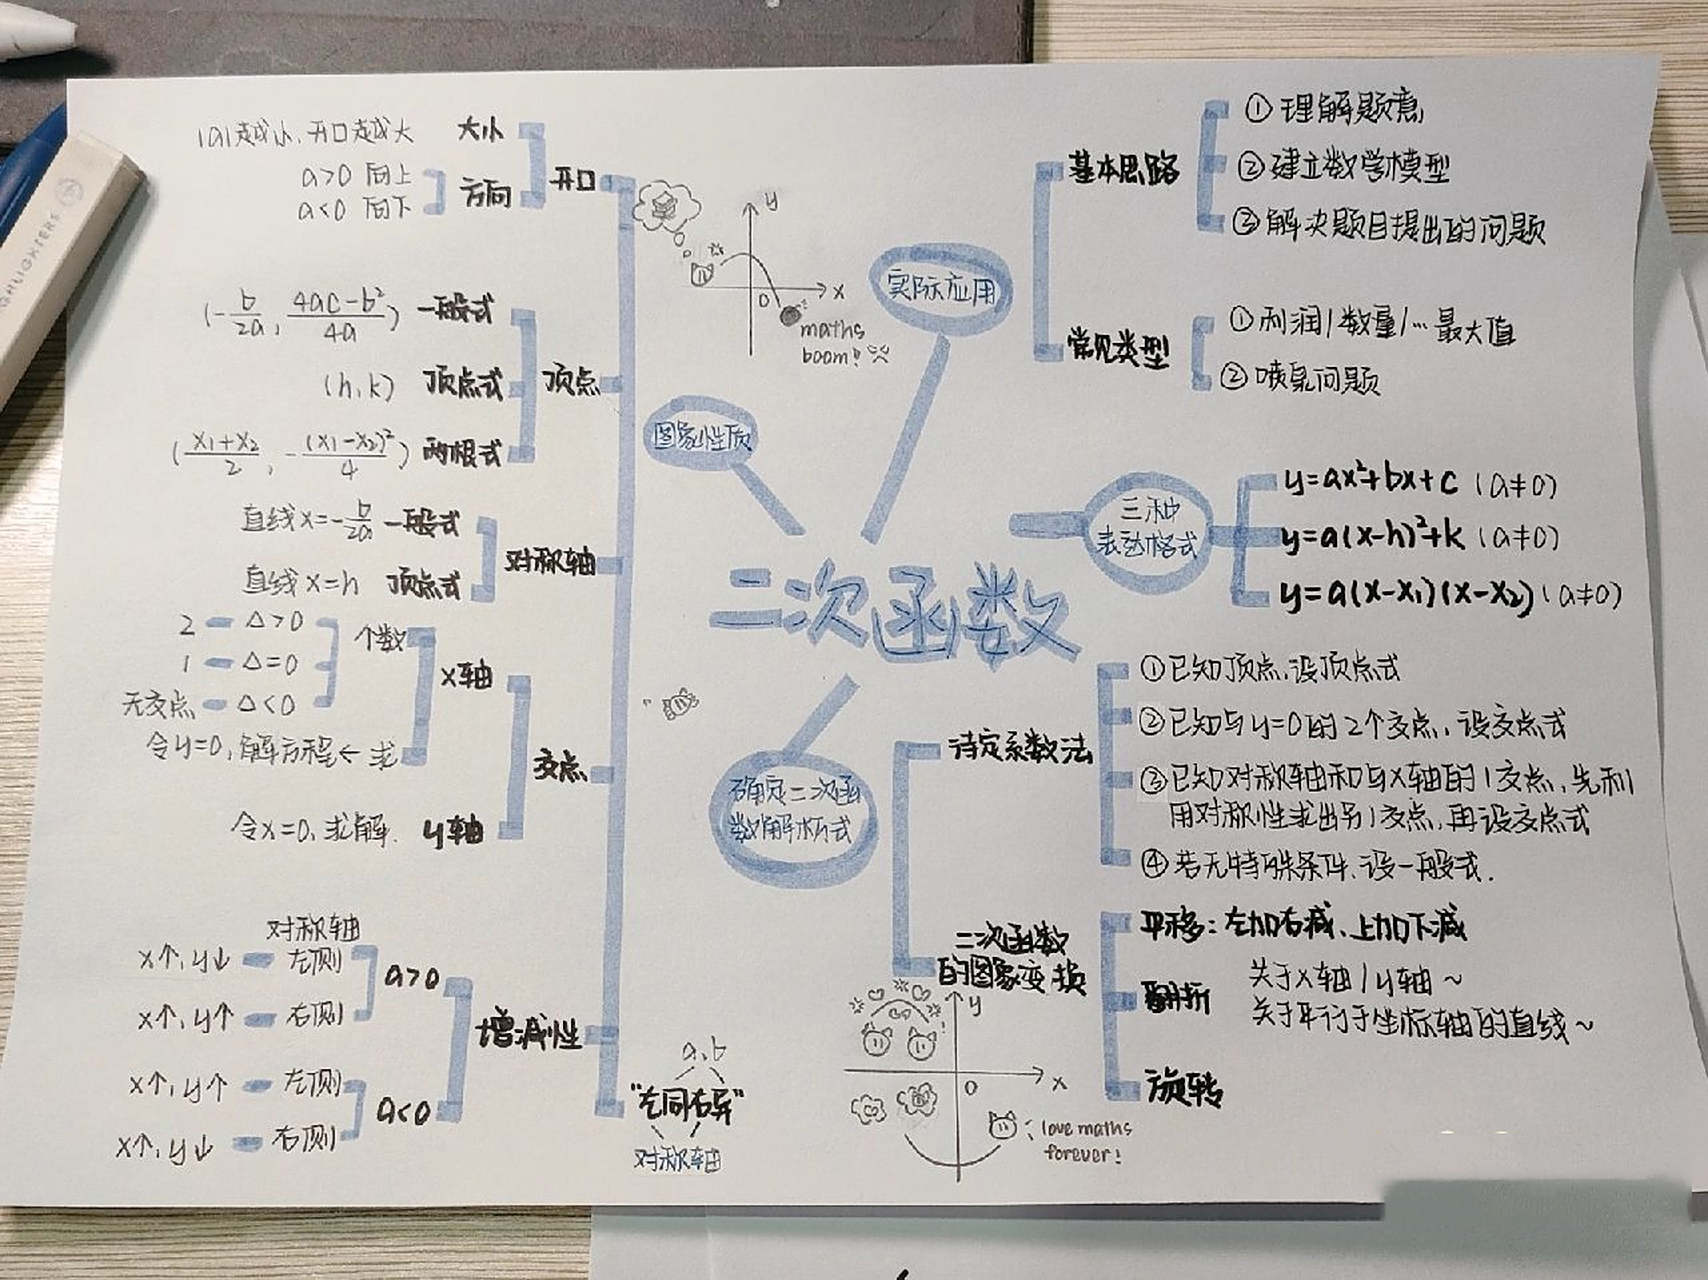 二次函数
图象性质
开口
大小
|a|越小,开口越大
方向
a>0 向上
a<0 向下
顶点
一般式
(-b/2a, 4ac-b²/4a)
顶点式
(h,k)
两根式
(x₁+x₂/2, -(x₁-x₂)²/4)
对称轴
一般式
直线x=-b/2a
顶点式
直线x=h
交点
x轴
个数
2 — △>0
1 — △=0
无交点 — △<0
令y=0,解方程←求
y轴
令x=0,求解.
增减性
对称轴
a>0
x↑,y↓ — 左侧
x↑,y↑ — 右侧
a<0
x↑,y↑ — 左侧
x↑,y↓ — 右侧
a,b
"左同右异"
对称轴
y
x
0
maths
boom!
实际应用
基本思路
①理解题意
②建立数学模型
③解决题目提出的问题
常见类型
①利润/数量/…最大值
②喷泉问题
三种
表达格式
y=ax²+bx+c (a≠0)
y=a(x-h)²+k (a≠0)
y=a(x-x₁)(x-x₂)(a≠0)
确定二次函
数解析式
待定系数法
①已知顶点,设顶点式
②已知与y=0的2个交点,设交点式
③已知对称轴和与x轴的1交点,先利
用对称性求出另1交点,再设交点式
④若无特殊条件,设一般式.
二次函数
的图象变换
平移:左加右减、上加下减
翻折
关于x轴/y轴~
关于平行于坐标轴的直线~
旋转
y
x
0
love maths
forever!
GHLIGHTERS